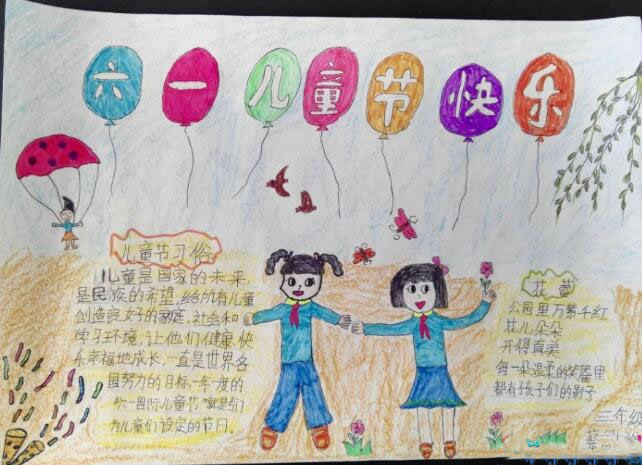 六一儿童节快乐
儿童节习俗
儿童是国家的未来,
是民族的希望,给所有儿童
创造良好的家庭、社会和
学习环境,让他们健康、快
乐幸福地成长,一直是世界各
国努力的目标,一年一度的
"六一国际儿童节"就是专门
为儿童们设定的节日。
花
公园里万紫千红
花儿朵朵
开得真美
每一朵温柔的笑容里
都有孩子们的影子
三年级